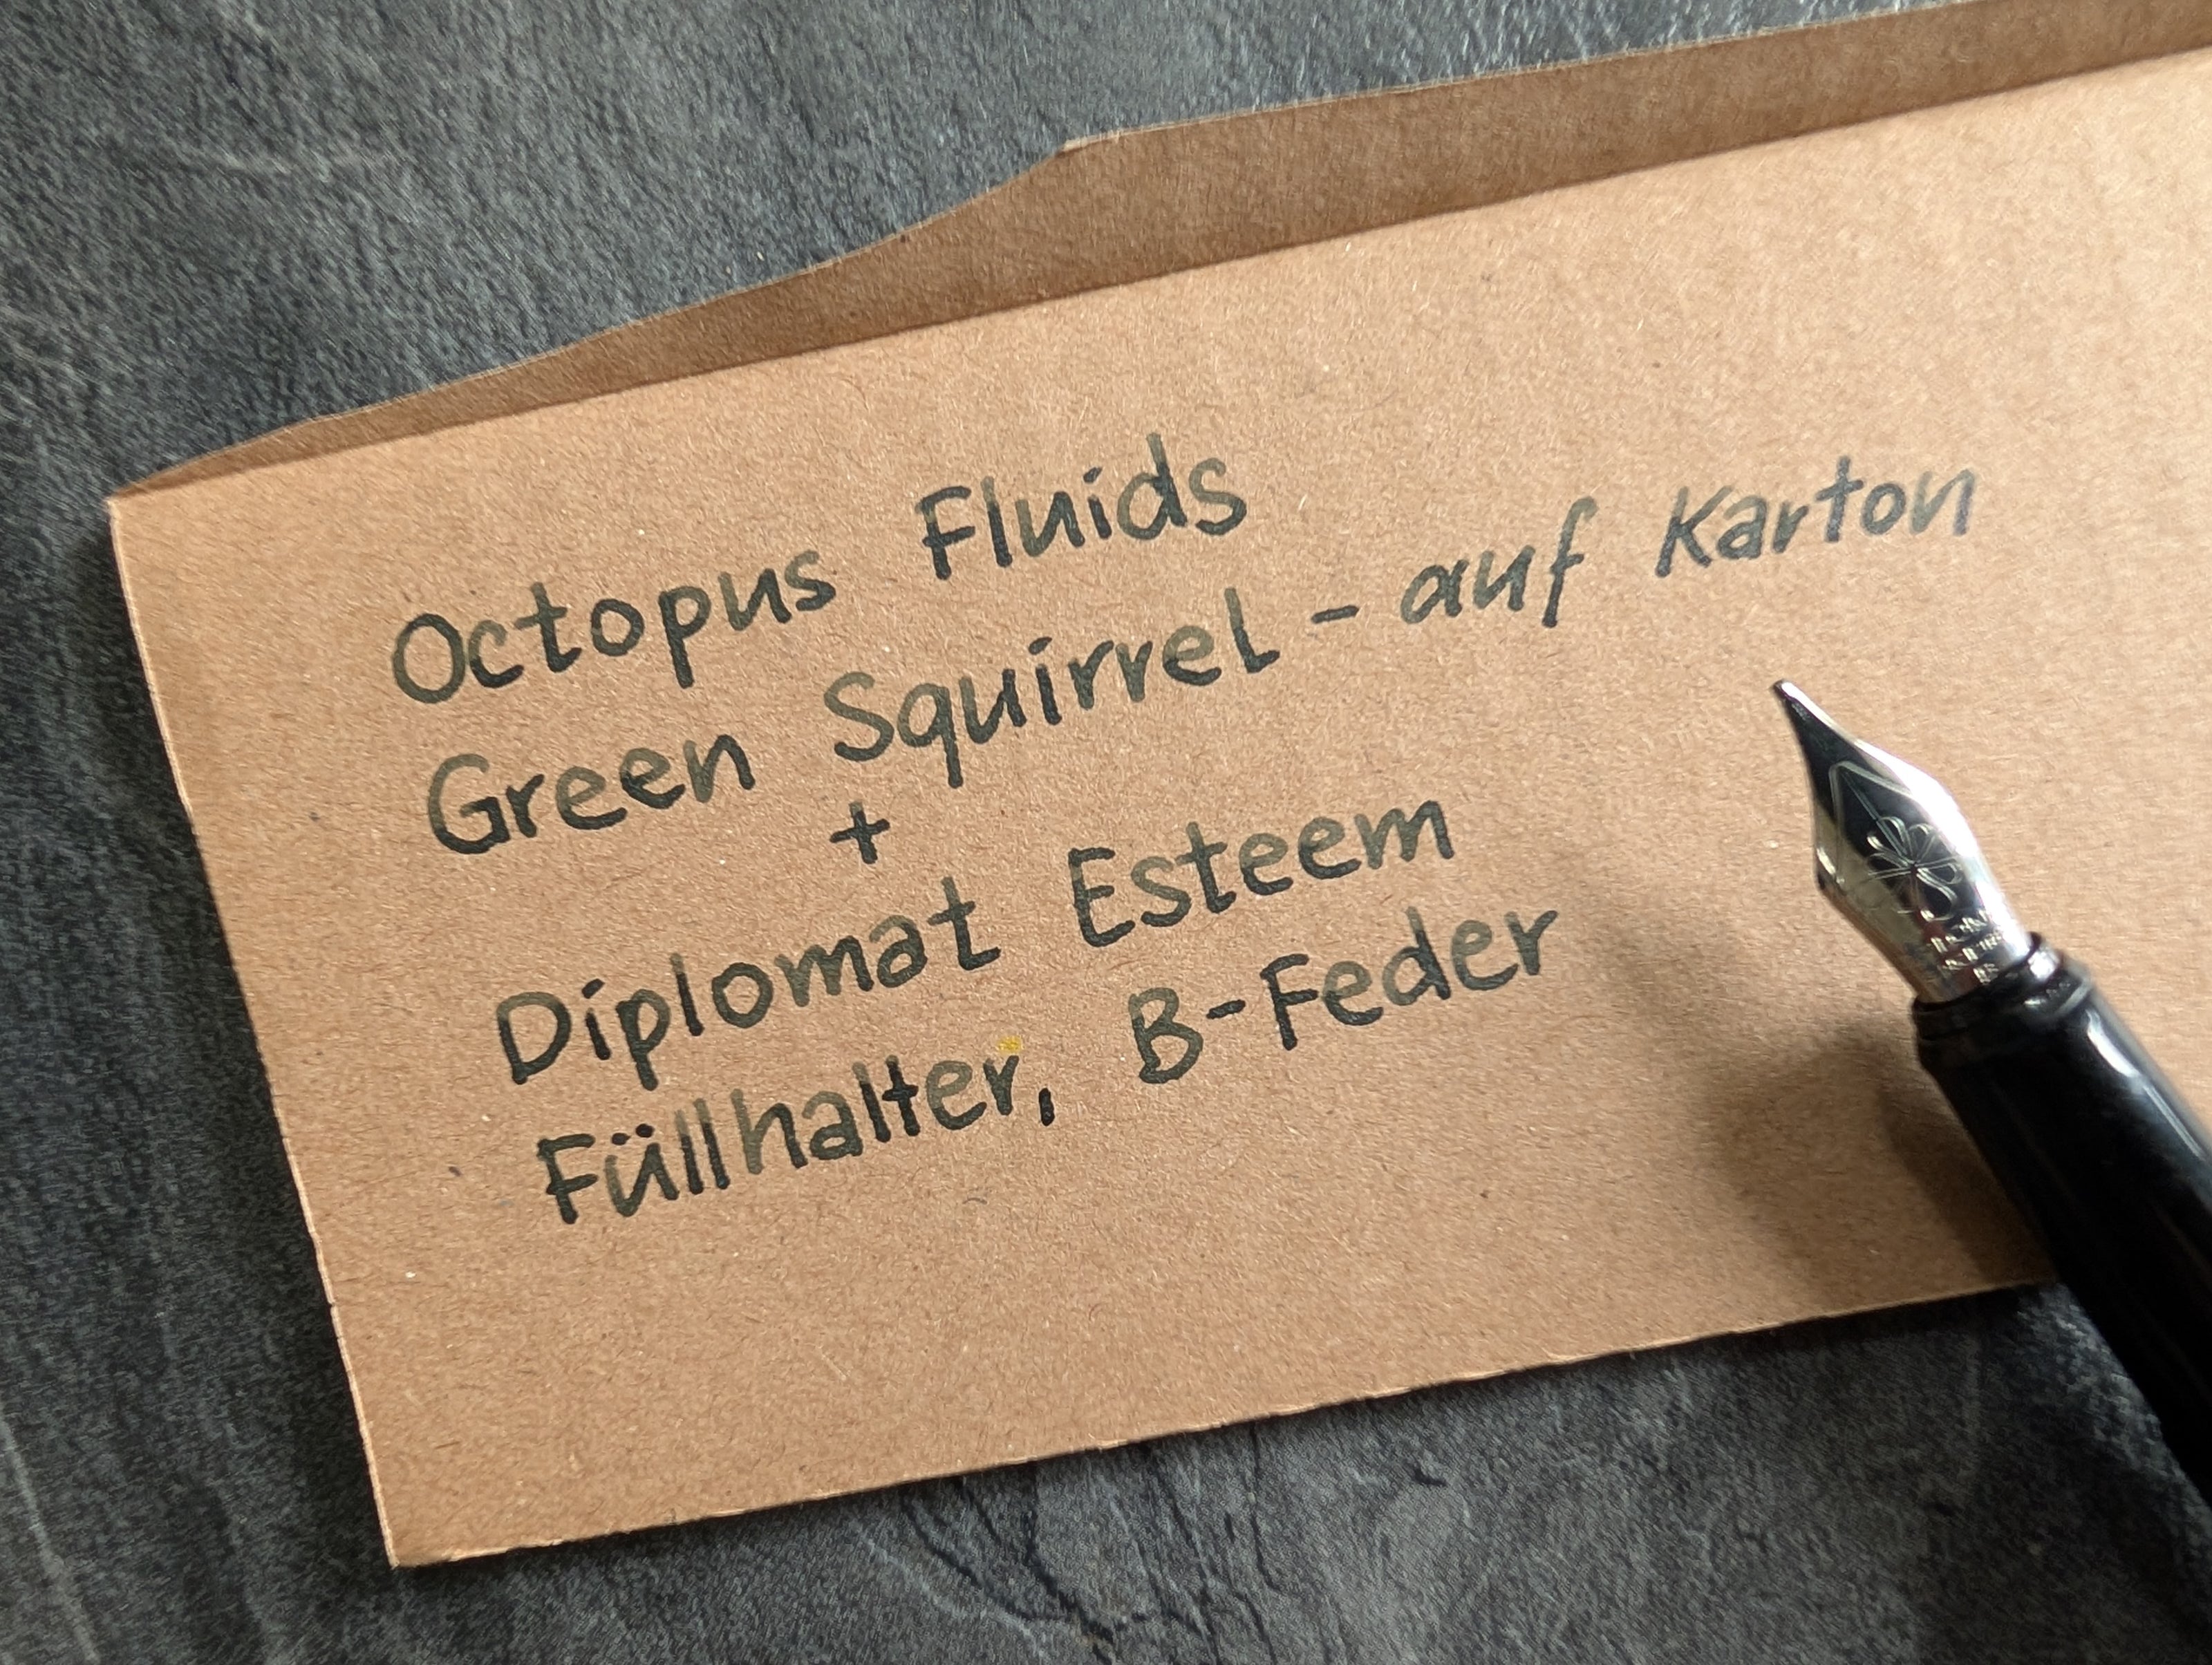 Octopus Fluids
Green Squirrel - auf Karton
+
Diplomat Esteem
Füllhalter, B-Feder